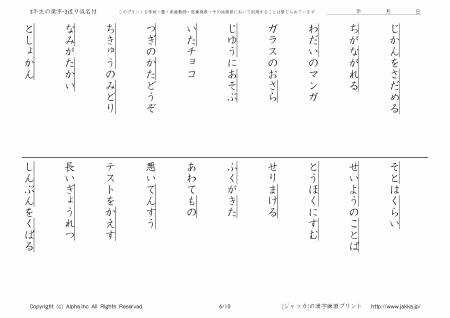 3年生の漢字-3送り仮名付
このプリントを学校・塾・家庭教師・医療機関・その他施設において利用することは禁じられています
年 月 日
じかんをさだめる
ちがながれる
わだいのマンガ
ガラスのおさら
じゆうにあそぶ
いたチョコ
つぎのかたどうぞ
ちきゅうのみどり
なみがたかい
としょかん
そとはくらい
せいようのことば
とうほくにすむ
せりまける
ふくがきた
あわてもの
悪いてんすう
テストをかえす
長いぎょうれつ
しんぶんをくばる
Copyright (c) Alpha.Inc All Rights Reserved.
6/10
(ジャッカ)の漢字練習プリント http://www.jakka.jp/